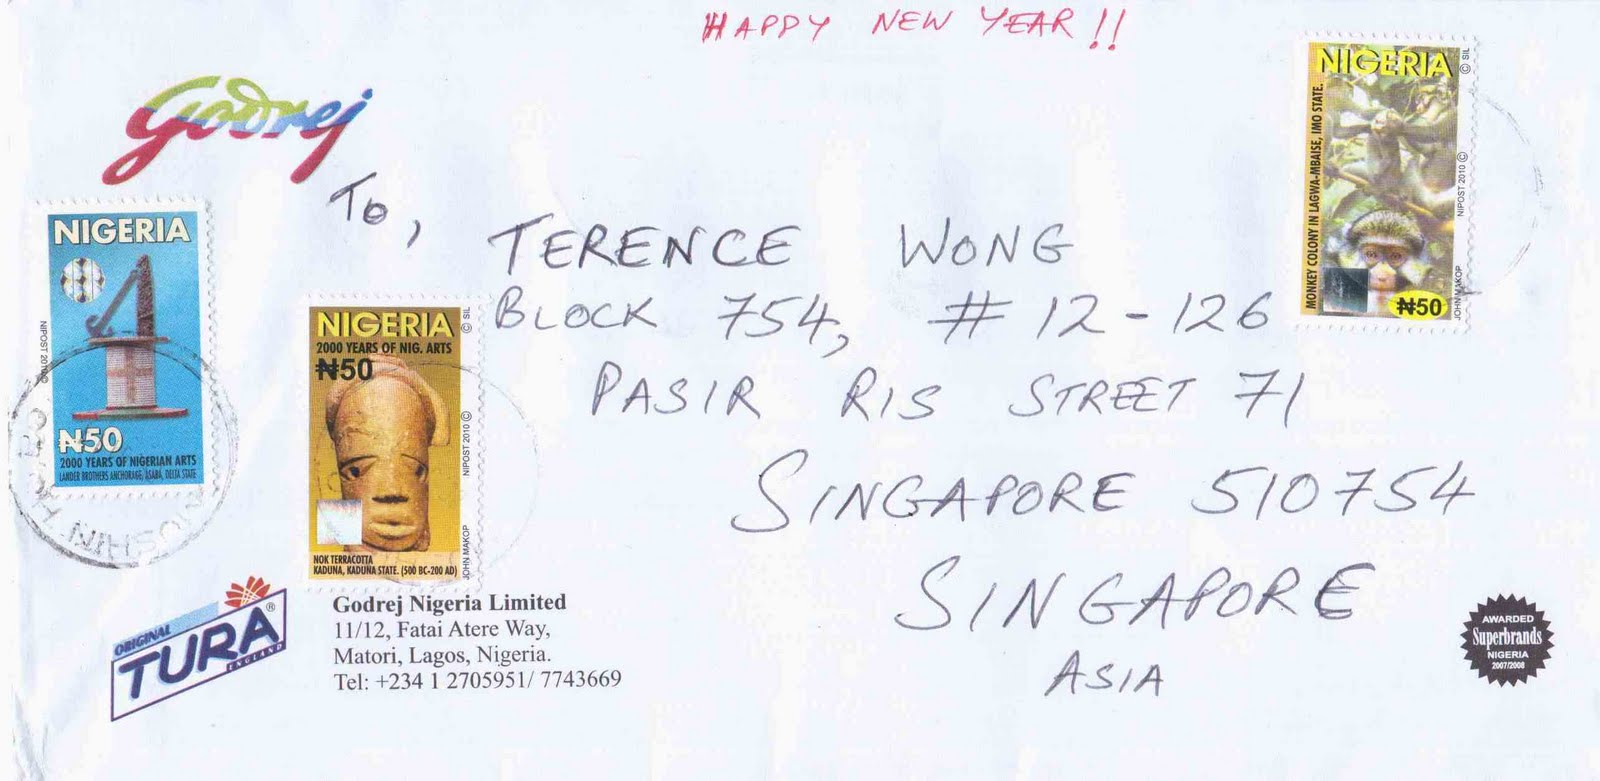 HAPPY NEW YEAR!!
Godrej
To,
TERENCE WONG
BLOCK 754, # 12-126
PASIR RIS STREET 71
SINGAPORE 510754
SINGAPORE
ASIA
NIGERIA
NIPOST 2010 ©
₦50
2000 YEARS OF NIGERIAN ARTS
LANDER BROTHERS ANCHORAGE, ASABA, DELTA STATE
NIGERIA
2000 YEARS OF NIG. ARTS
₦50
NOK TERRACOTTA
KADUNA, KADUNA STATE. (500 BC-200 AD)
JOHN MAKOP NIPOST 2010 © © SIL
NIGERIA
MONKEY COLONY IN LAGWA-MBAISE, IMO STATE.
₦50
JOHN MAKOP NIPOST 2010 © © SIL
ORIGINAL
TURA®
ENGLAND
Godrej Nigeria Limited
11/12, Fatai Atere Way,
Matori, Lagos, Nigeria.
Tel: +234 1 2705951/ 7743669
AWARDED
Superbrands
NIGERIA
2007/2008